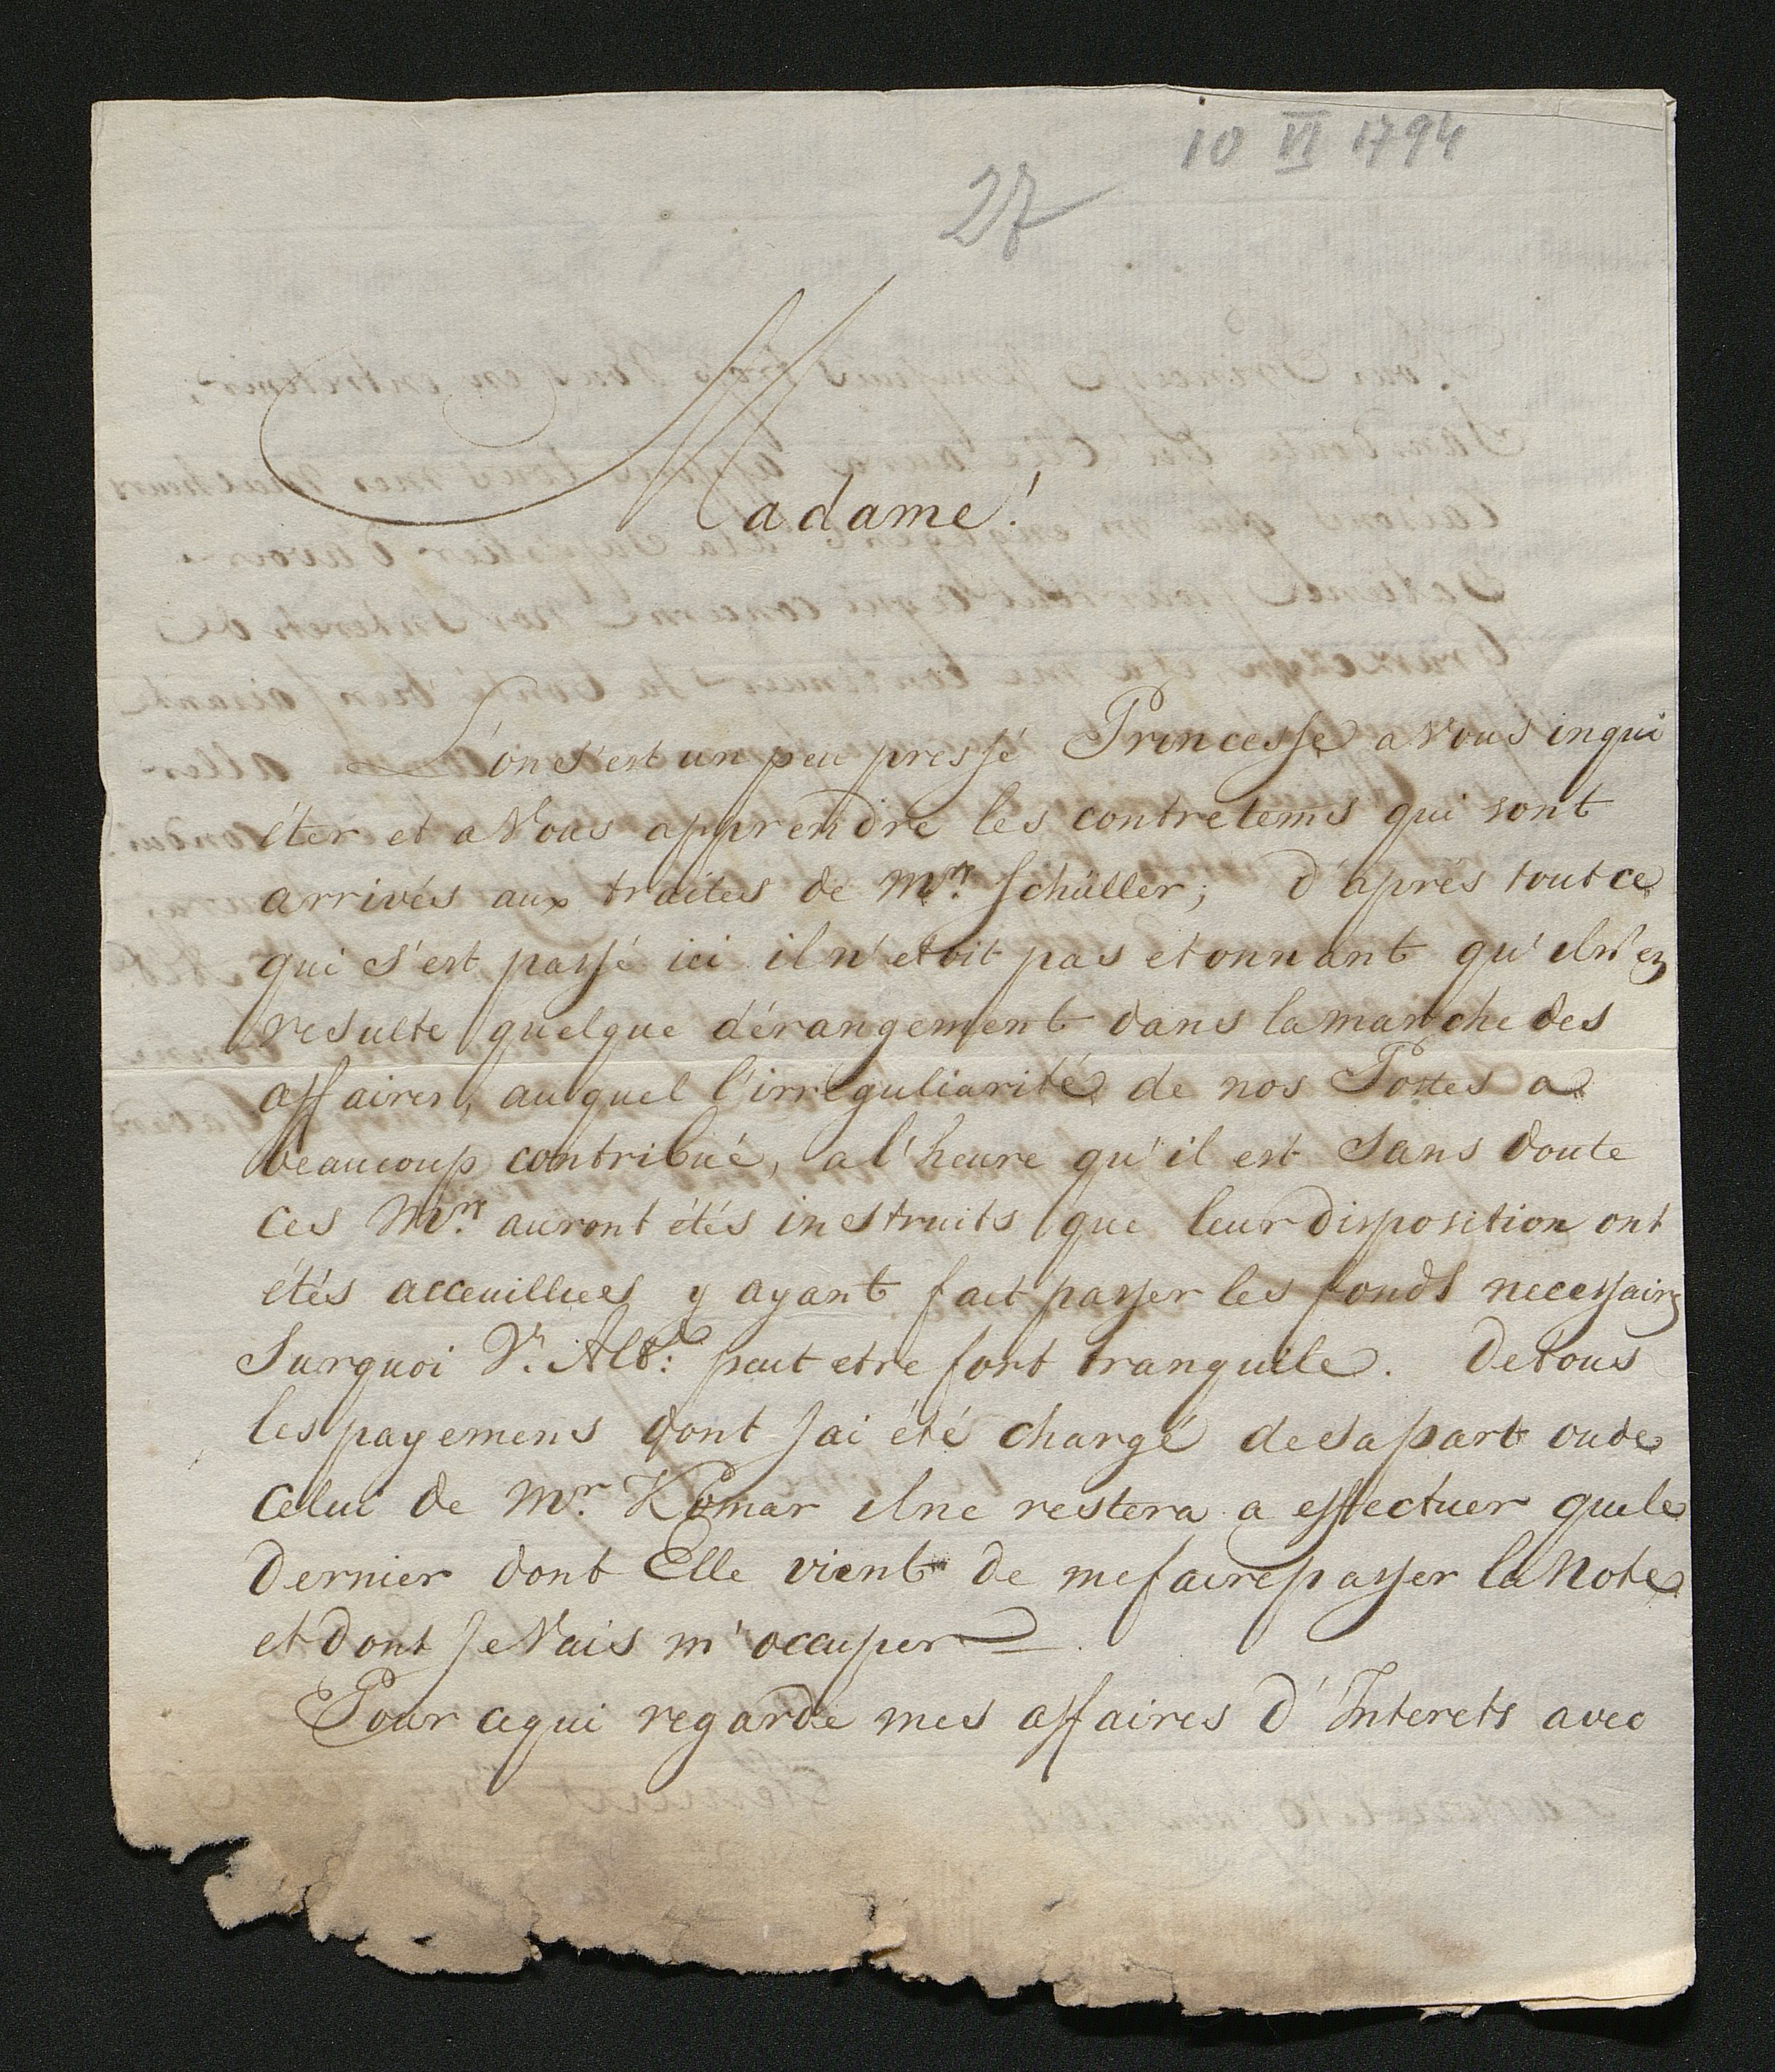 10 VI 1794
27
Madame!
L'on s'est un peu pressé Princesse a Vous inqui
éter et a Vous apprendre les contretems qui sont
arrivés aux traites de Mrs. Schüller; d'aprés tout ce
qui s'est passé ici il n'etoit pas etonnant qu'il n'en
resulte quelque dérangement dans la marche des
affaires, au quel l'irréguliarité de nos Postes a
beaucoup contribué, a l'heure qu'il est sans doute
ces Mrs. auront étés instruits que leur disposition ont
étés acceuillies y ayant fait passer les fonds necessaires
Surquoi V. Alt: peut etre fort tranquile. De tous
les payemens dont J'ai été chargé de sa part ou de
celui de Mr. Komar il ne restera a effectuer que le
dernier dont Elle vient de me faire passer la Note
et dont Je Vais m'occuper —.
Pour ce qui regarde mes affaires d'Interets avec